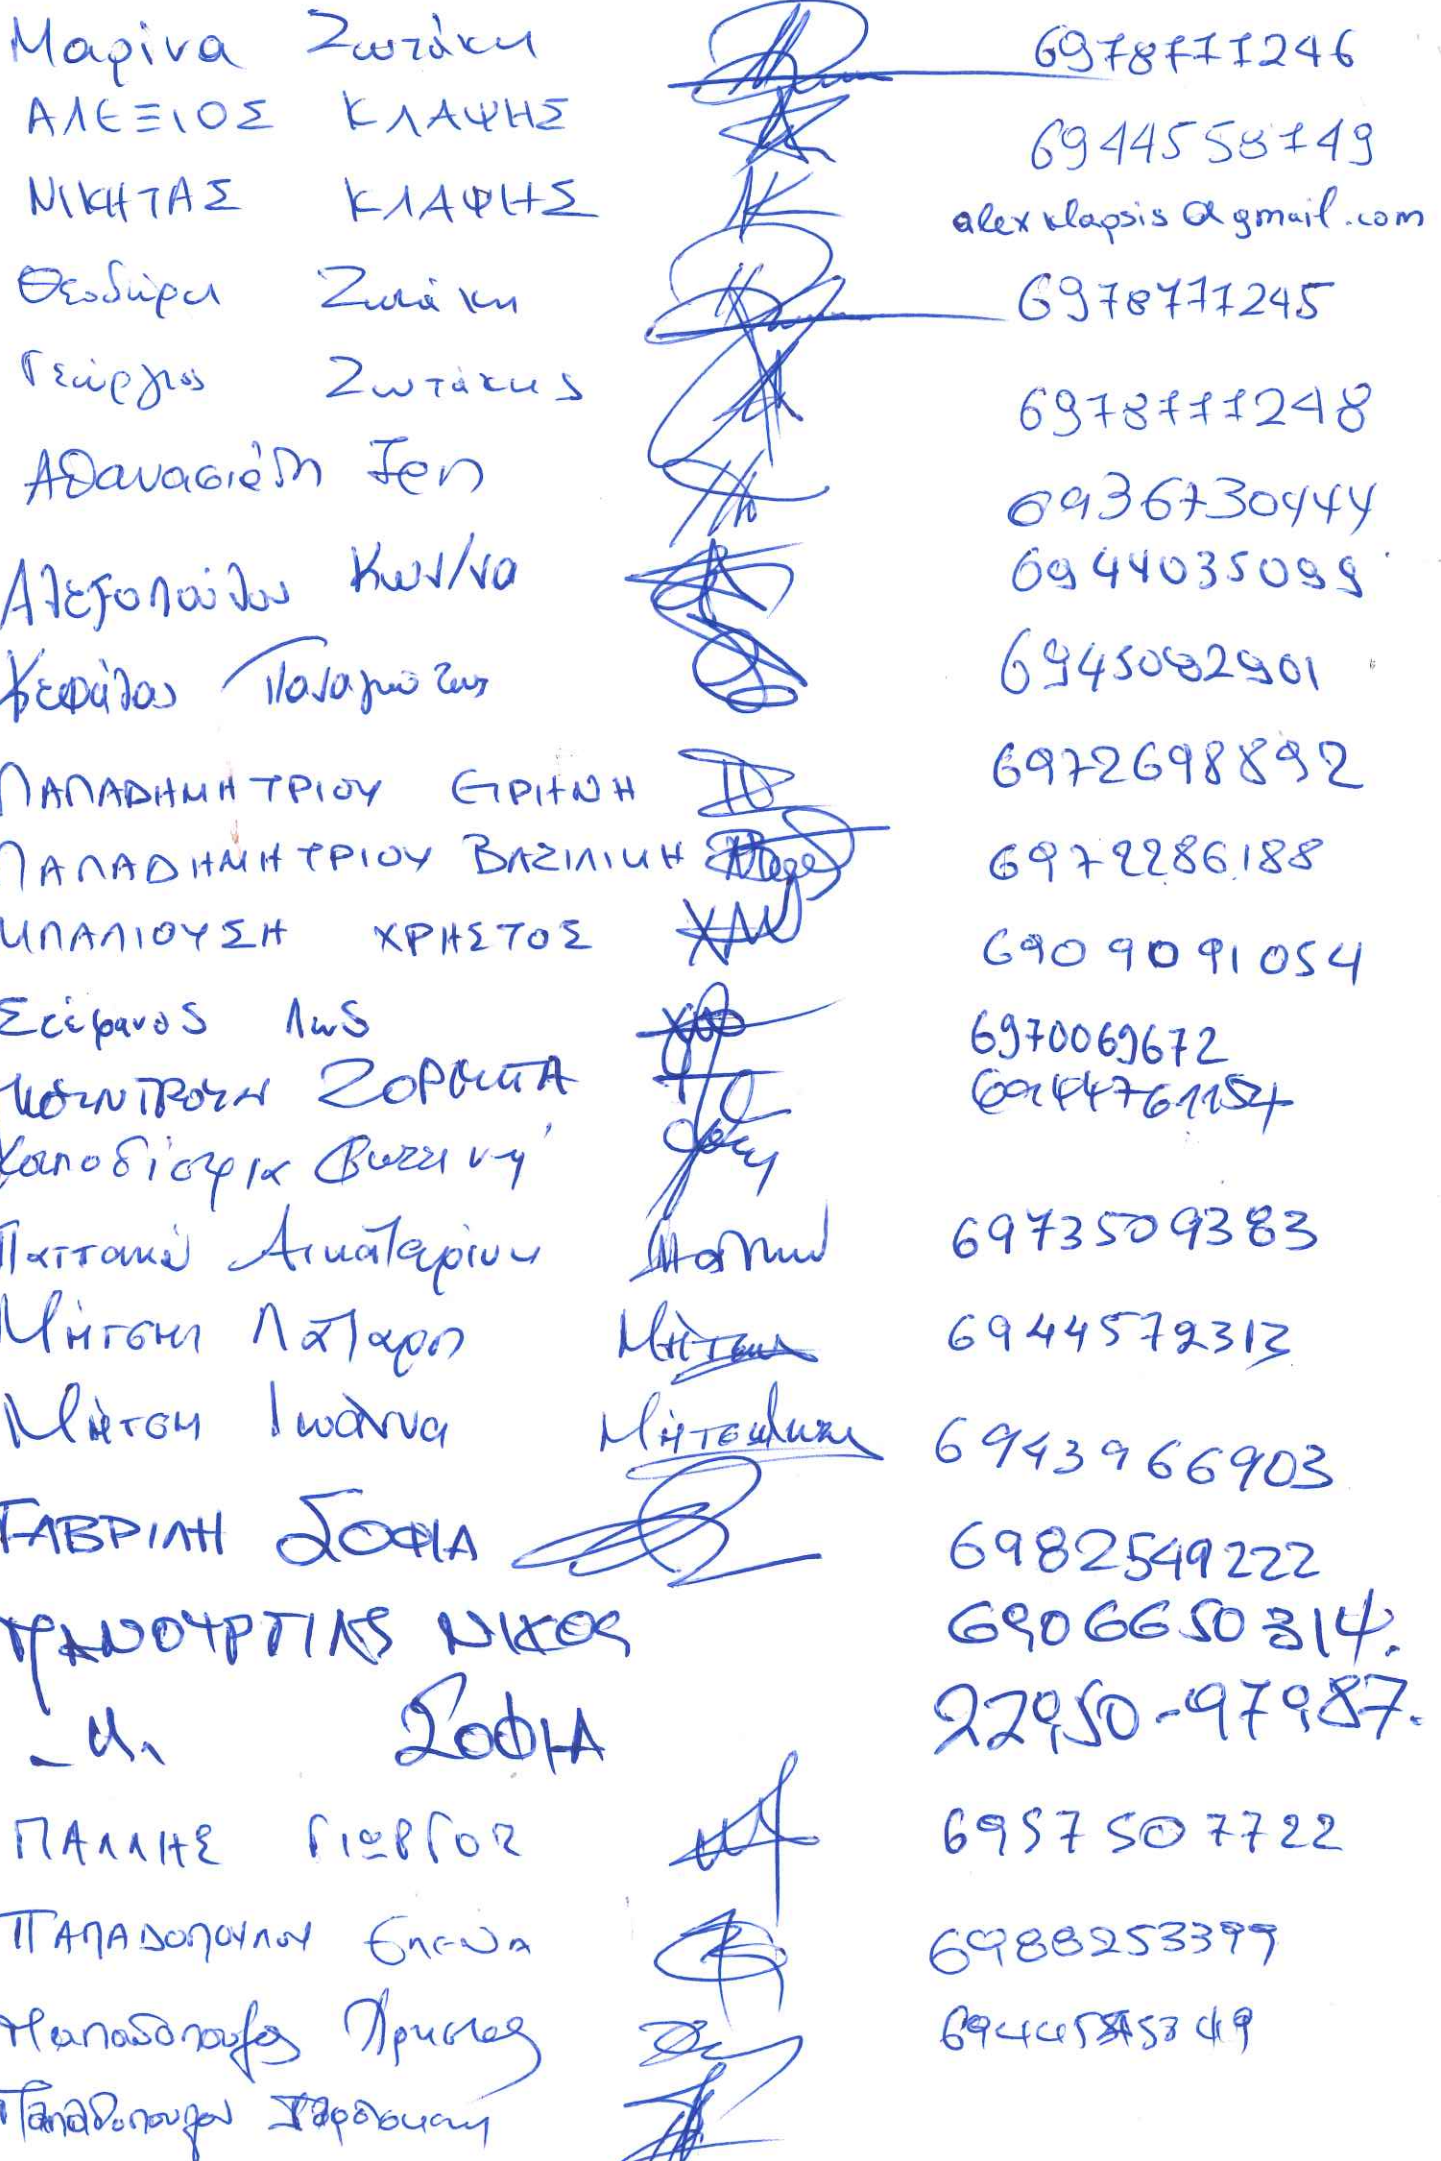 Μαρίνα Ζωτάκη 6978777246
ΑΛΕΞΙΟΣ ΚΛΑΨΗΣ 6944558749
ΝΙΚΗΤΑΣ ΚΛΑΨΗΣ alexklapsis@gmail.com
Θεοδώρα Ζωτάκη 6978777245
Γεώργιος Ζωτάκης 6978777248
Αθανασιάδη 6936730444
Αλεξοπούλου Κων/να 6944035099
Κεφάλας Παναγιώτης 6945082901
ΠΑΠΑΔΗΜΗΤΡΙΟΥ ΕΙΡΗΝΗ 6972698892
ΠΑΠΑΔΗΜΗΤΡΙΟΥ ΒΑΣΙΛΙΚΗ 6972286188
ΜΠΑΛΙΟΥΣΗ ΧΡΗΣΤΟΣ 6909091054
Στέφανος Λως 6970069672
Καποδίστρια Φωτεινή
Παττακού Αικατερίνη 6973509383
Μήτση 6944572313
Μήτση Ιωάννα 6943966903
ΓΑΒΡΙΛΗ ΣΟΦΙΑ 6982549222
ΝΙΚΟΣ 6906650314.
ΣΟΦΙΑ
ΠΑΛΛΗΣ ΓΙΩΡΓΟΣ 6957507722
ΠΑΠΑΔΟΠΟΥΛΟΥ Ελενα 6988253399
Παπαδόπουλος Χρηστος
Παπαδοπούλου